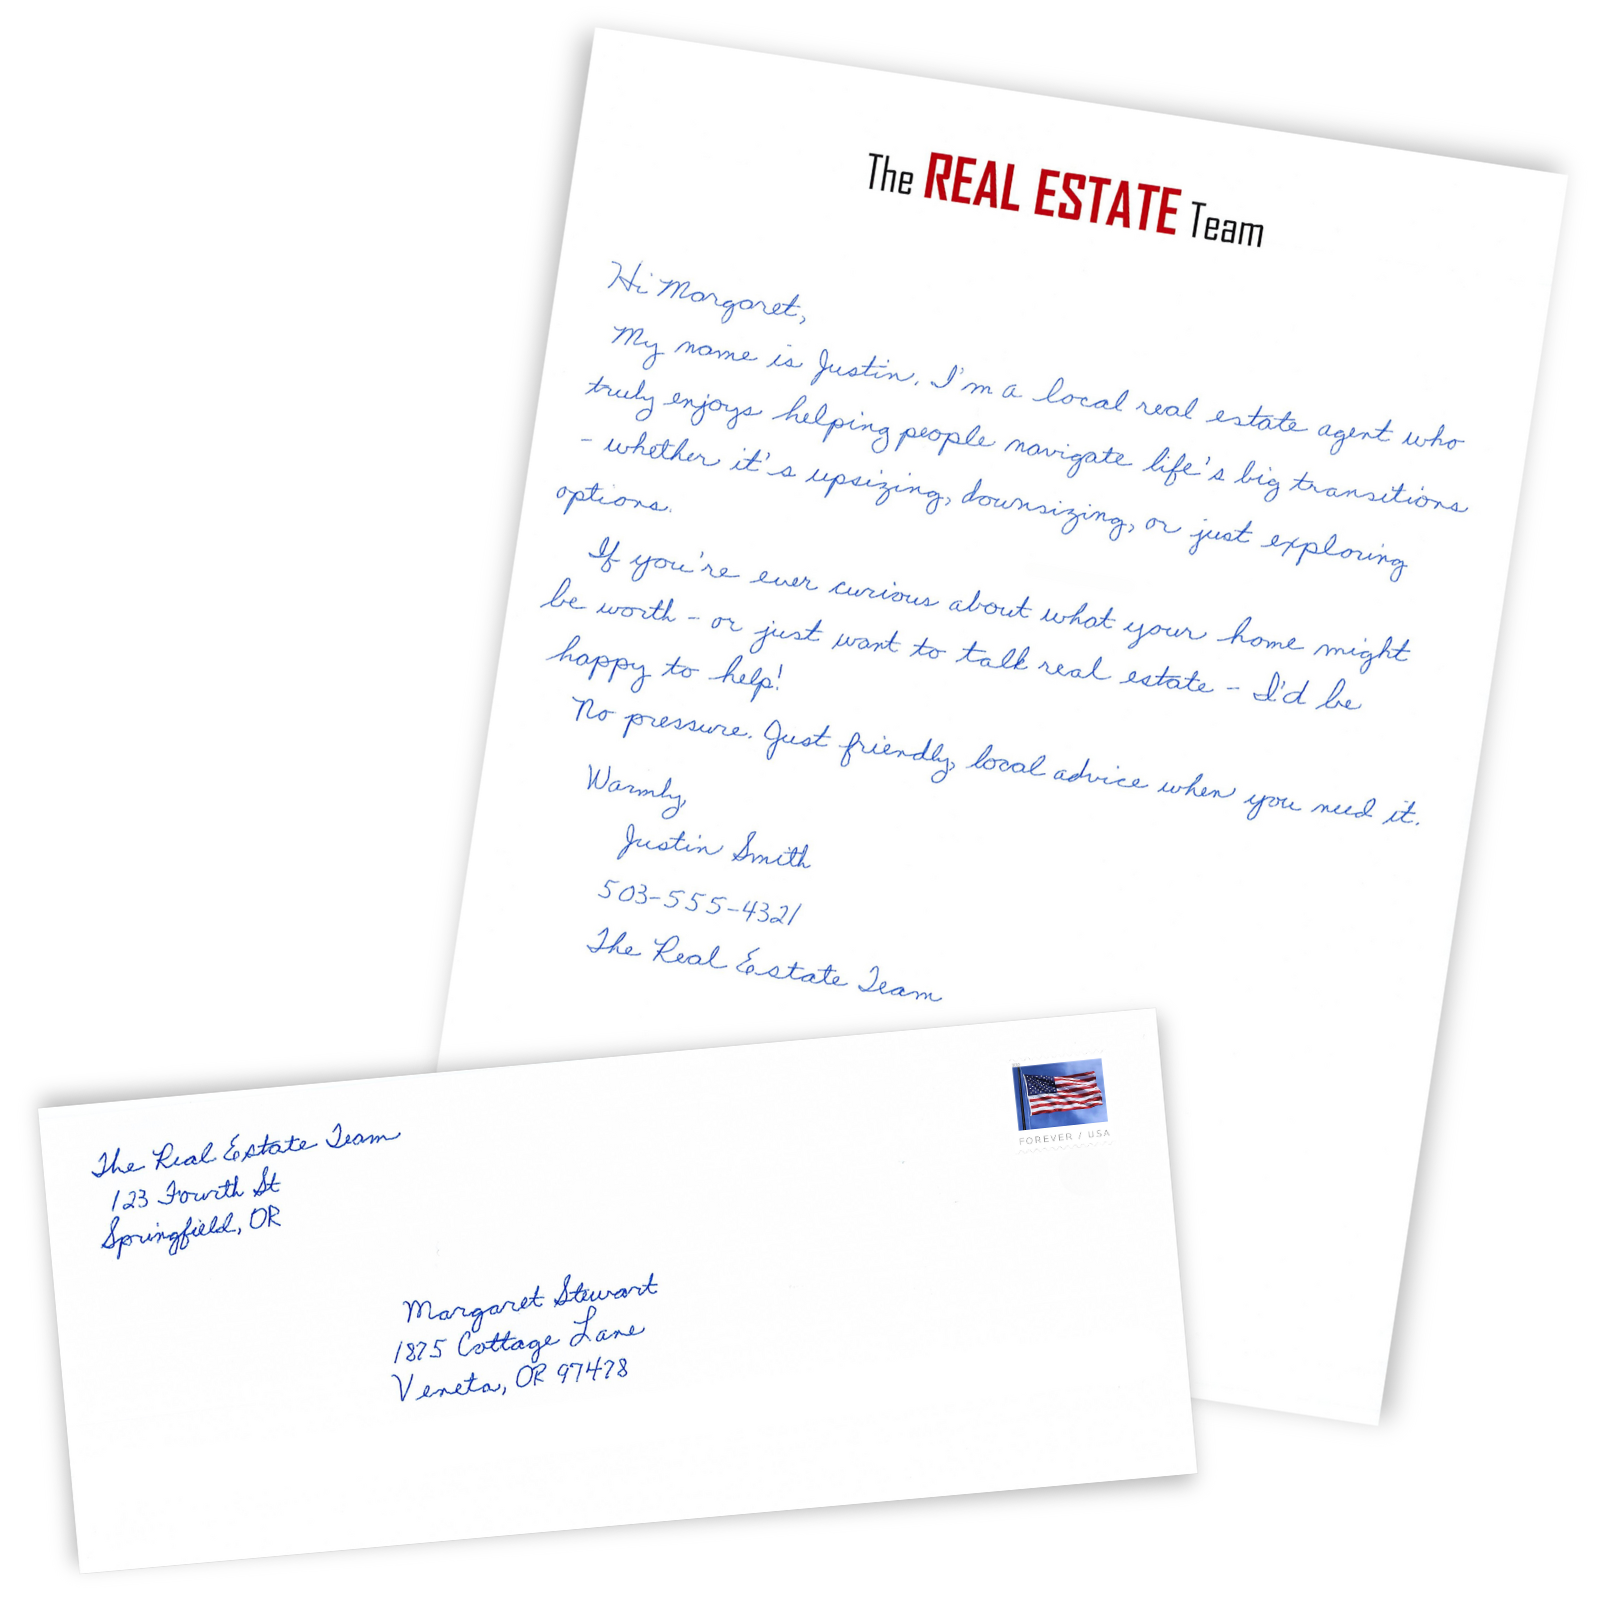 The REAL ESTATE Team
Hi Margaret,
My name is Justin. I'm a local real estate agent who
truly enjoys helping people navigate life's big transitions
- whether it's upsizing, downsizing, or just exploring
options.
If you're ever curious about what your home might
be worth - or just want to talk real estate - I'd be
happy to help!
No pressure. Just friendly, local advice when you need it.
Warmly,
Justin Smith
503-555-4321
The Real Estate Team
The Real Estate Team
123 Fourth St
Springfield, OR
FOREVER / USA
Margaret Stewart
1875 Cottage Lane
Veneta, OR 97478